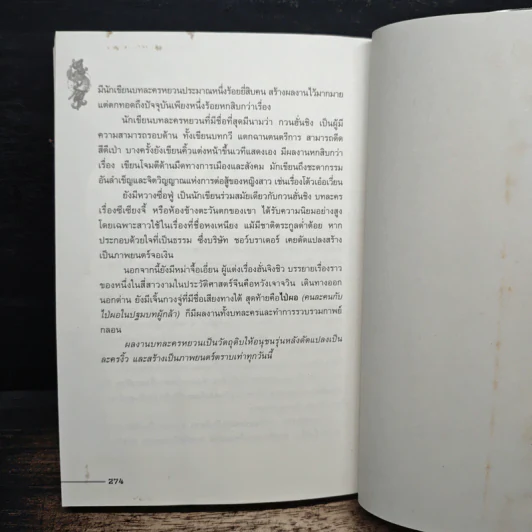 มีนักเขียนบทละครหยวนประมาณหนึ่งร้อยยี่สิบคน สร้างผลงานไว้มากมาย
แต่ตกทอดถึงปัจจุบันเพียงหนึ่งร้อยหกสิบกว่าเรื่อง
นักเขียนบทละครหยวนที่มีชื่อที่สุดมีนามว่า กวนฮั่นชิง เป็นผู้มี
ความสามารถรอบด้าน ทั้งเขียนบทกวี แตกฉานดนตรีการ สามารถดีด
สีตีเป่า บางครั้งยังเขียนคิ้วแต่งหน้าขึ้นเวทีแสดงเอง มีผลงานหกสิบกว่า
เรื่อง เขียนโจมตีด้านมืดทางการเมืองและสังคม มักเขียนถึงชะตากรรม
อันลำเข็ญและจิตวิญญาณแห่งการต่อสู้ของหญิงสาว เช่นเรื่องโต้วเอ๋อเวี่ยน
ยังมีหวางซื่อฟู่ เป็นนักเขียนร่วมสมัยเดียวกับกวนฮั่นชิง บทละคร
เรื่องซีเซียงจี้ หรือห้องข้างตะวันตกของเขา ได้รับความนิยมอย่างสูง
โดยเฉพาะสาวใช้ในเรื่องที่ชื่อหงเหนียง แม้มีชาติตระกูลต่ำต้อย หาก
ประกอบด้วยใจที่เป็นธรรม ซึ่งบริษัท ชอว์บราเดอร์ เคยดัดแปลงสร้าง
เป็นภาพยนตร์จอเงิน
นอกจากนี้ยังมีหม่าจื้อเอี่ยน ผู้แต่งเรื่องฮั่นจิงชิว บรรยายเรื่องราว
ของหนึ่งในสี่สาวงามในประวัติศาสตร์จีนคือหวังเจาจวิน เดินทางออก
นอกด่าน ยังมีเจิ้นกวงจู่ที่มีชื่อเสียงทางใต้ สุดท้ายคือไป๋ผอ (คนละคนกับ
ไป๋ผอในปฐมบทผู้กล้า) ก็มีผลงานทั้งบทละครและทำการรวบรวมกาพย์
กลอน
ผลงานบทละครหยวนเป็นวัตถุดิบให้อนุชนรุ่นหลังดัดแปลงเป็น
ละครงิ้ว และสร้างเป็นภาพยนตร์ตราบเท่าทุกวันนี้
274